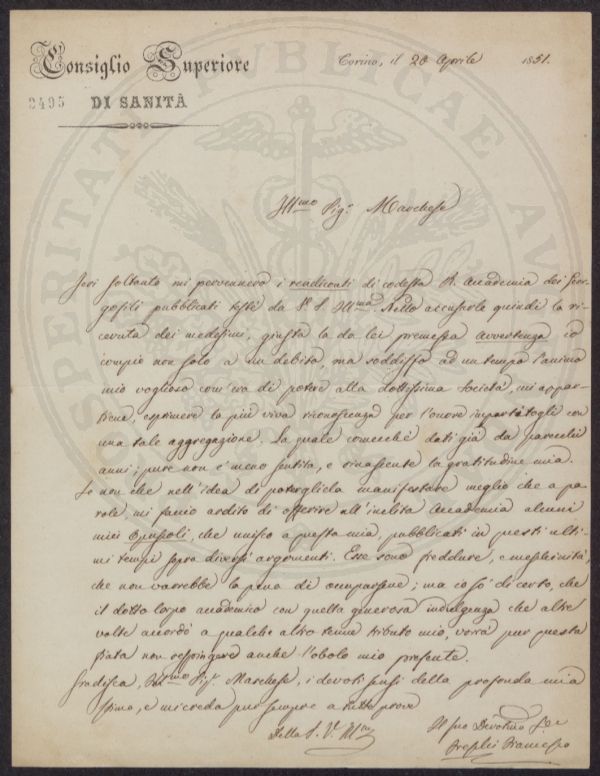 Consiglio Superiore
DI SANITÀ
2495
Torino, il 20 Aprile 1851.
Ill.mo Sig.r Marchese
Jeri soltanto mi pervennero i rendiconti di codesta R. Accademia dei Geor-
gofili pubblicati testè da S. S. Ill.ma. Nello accusarle quindi la ri-
cevuta dei medesimi, giusta la da lei premessa avvertenza io
compio non solo a un debito, ma soddisfo ad un tempo l'animo
mio voglioso com'era di potere alla dottissima Società, cui appar-
tiene, esprimere la più viva riconoscenza per l'onore impartitogli con
una tale aggregazione. La quale comecchè dati già da parecchi
anni; pure non è meno sentita, e rinascente la gratitudine mia.
Se non che nell'idea di potergliela manifestare meglio che a pa-
role, mi faccio ardito di offerire all'inclita Accademia alcuni
miei Opuscoli, che unisco a questa mia, pubblicati in questi ulti-
mi tempi sopra diversi argomenti. Esse sono freddure, e meschinità,
che non varrebbe la pena di occuparsene; ma io so di certo, che
il dotto Corpo accademico con quella generosa indulgenza che altre
volte accordò a qualche altro tenue tributo mio, vorrà pur questa
fiata non respingere anche l'obolo mio presente.
Gradisca, Ill.mo Sig.r Marchese, i devoti sensi della profonda mia
stima, e mi creda pur sempre a tutte prove
Della S. V. Ill.ma
Il suo Devotmo
Francesco